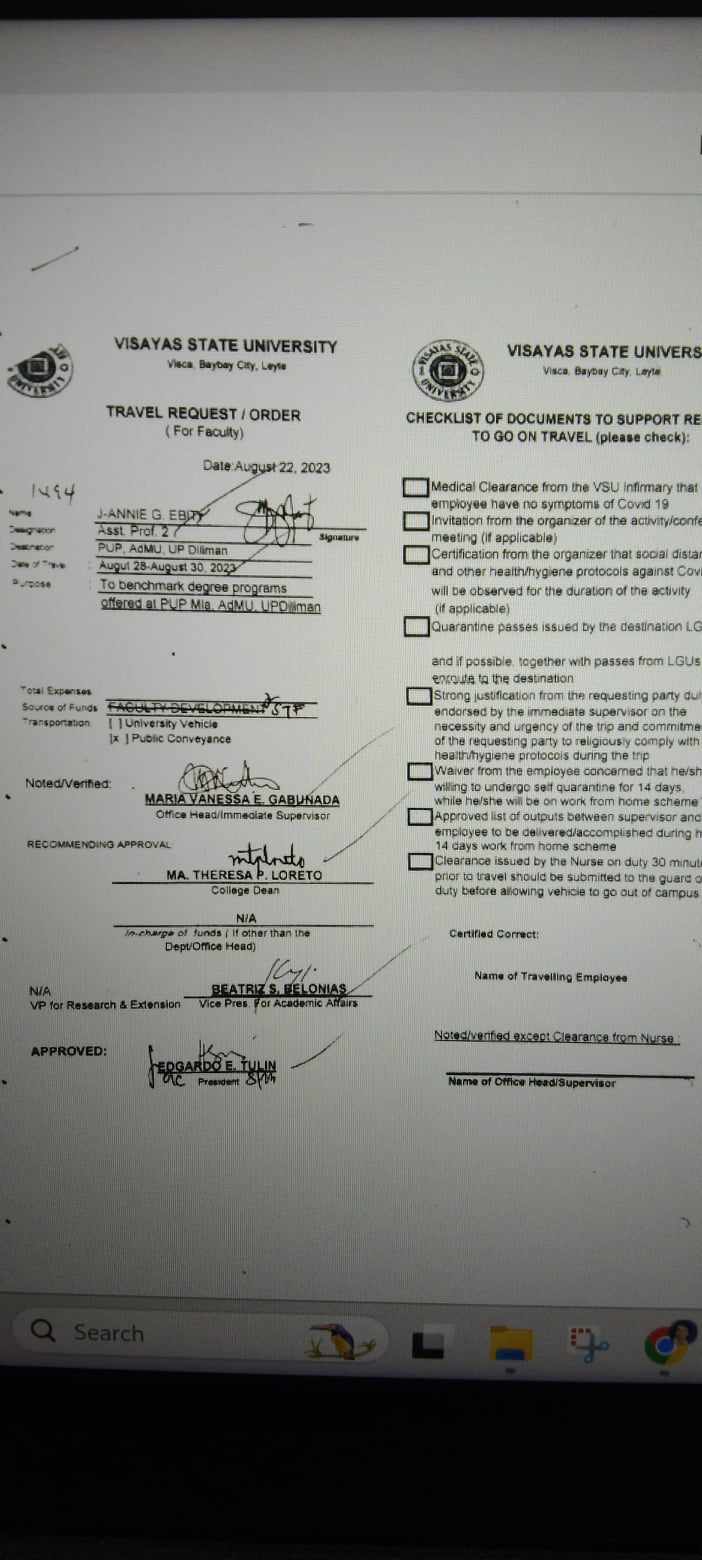 VISAYAS STATE UNIVERSITY
Visca, Baybay City, Leyte
TRAVEL REQUEST / ORDER
( For Faculty)
Date:August 22, 2023
1494
Name : J-ANNIE G. EBITY
Signature
Designation : Asst. Prof. 2
Destination : PUP, AdMU, UP Diliman
Date of Travel : Augut 28-August 30, 2023
Purpose : To benchmark degree programs
offered at PUP Mla, AdMU, UPDiliman
Total Expenses
Source of Funds : FACULTY DEVELOPMENT STF
Transportation: [ ] University Vehicle
[x ] Public Conveyance
Noted/Verified:
MARIA VANESSA E. GABUNADA
Office Head/Immediate Supervisor
RECOMMENDING APPROVAL
MA. THERESA P. LORETO
College Dean
N/A
In-charge of funds ( If other than the
Dept/Office Head)
N/A
VP for Research & Extension
BEATRIZ S. BELONIAS
Vice Pres. For Academic Affairs
APPROVED:
EDGARDO E. TULIN
President
VISAYAS STATE UNIVERS
Visca, Baybay City, Leyte
CHECKLIST OF DOCUMENTS TO SUPPORT RE
TO GO ON TRAVEL (please check):
Medical Clearance from the VSU Infirmary that
employee have no symptoms of Covid 19
Invitation from the organizer of the activity/confe
meeting (if applicable)
Certification from the organizer that social distan
and other health/hygiene protocols against Covi
will be observed for the duration of the activity
(if applicable)
Quarantine passes issued by the destination LG
and if possible, together with passes from LGUs
enroute to the destination
Strong justification from the requesting party dul
endorsed by the immediate supervisor on the
necessity and urgency of the trip and commitme
of the requesting party to religiously comply with
health/hygiene protocols during the trip
Waiver from the employee concerned that he/sh
willing to undergo self quarantine for 14 days,
while he/she will be on work from home scheme
Approved list of outputs between supervisor and
employee to be delivered/accomplished during h
14 days work from home scheme
Clearance issued by the Nurse on duty 30 minute
prior to travel should be submitted to the guard o
duty before allowing vehicle to go out of campus
Certified Correct:
Name of Travelling Employee
Noted/verified except Clearance from Nurse :
Name of Office Head/Supervisor
Search